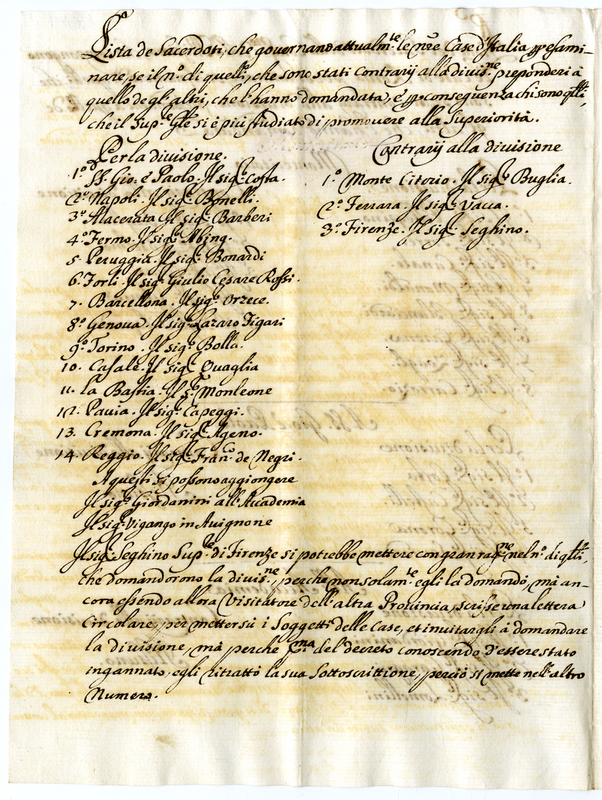 Lista de Sacerdoti, che governano attualm.te le n̄re Case d'Italia per esami-
nare, se il n.o di quelli, che sono stati contrarij alla divis.ne preponderi à
quello degl'altri, che l'hanno domandata, e per conseguenza chi sono q̄lli,
che il Sup.r G̅le si è più studiato di promovere alla Superiorità.
Per la divisione.
1.o SS. Gio. e Paolo. Il sig.r Costa.
2.o Napoli. Il sig.r Bonelli.
3.o Macerata Il sig.r Barberi
4.o Fermo. Il sig.r
5. Peruggia. Il sig.r Bonardi
6. Forlì. Il sig.r Giulio Cesare Rossi.
7. Barcellona. Il sig.r Orzece.
8.o Genova. Il sig.r Lazaro Figari
9.o Torino. Il sig.r Bolla.
10. Casale. Il sig.r Quaglia
11. la Bastia. Il s.r Monleone
12. Pavia. Il sig.r Capeggi.
13. Cremona. Il sig.r Ageno.
14. Reggio. Il sig.r Fran.co de Negri.
A questi si possono aggiongere
Il sig.r Giordanini all'Academia
Il sig.r Vigango in Avignone
Contrarij alla divisione
1.o Monte Citorio. Il sig.r Buglia.
2.o Ferrara. Il sig.r Vacca.
3.o Firenze. Il sig.r Seghino.
Il sig.r Seghino Sup.re di Firenze si potrebbe mettere con gran rag.ne nel n.o di q̄lli,
che domandorono la divis.ne, perche non solam.te egli la domandò, mà an-
cora essendo allora Visitatore dell'altra Provincia, scrisse una lettera
Circolare, per metter sù i Soggetti delle Case, et invitargli à domandare
la divisione, mà perche p̄ma del decreto conoscendo d'essere stato
ingannato, egli ritrattò la sua Sottoscrittione, perciò si mette nell'altro
Numero.